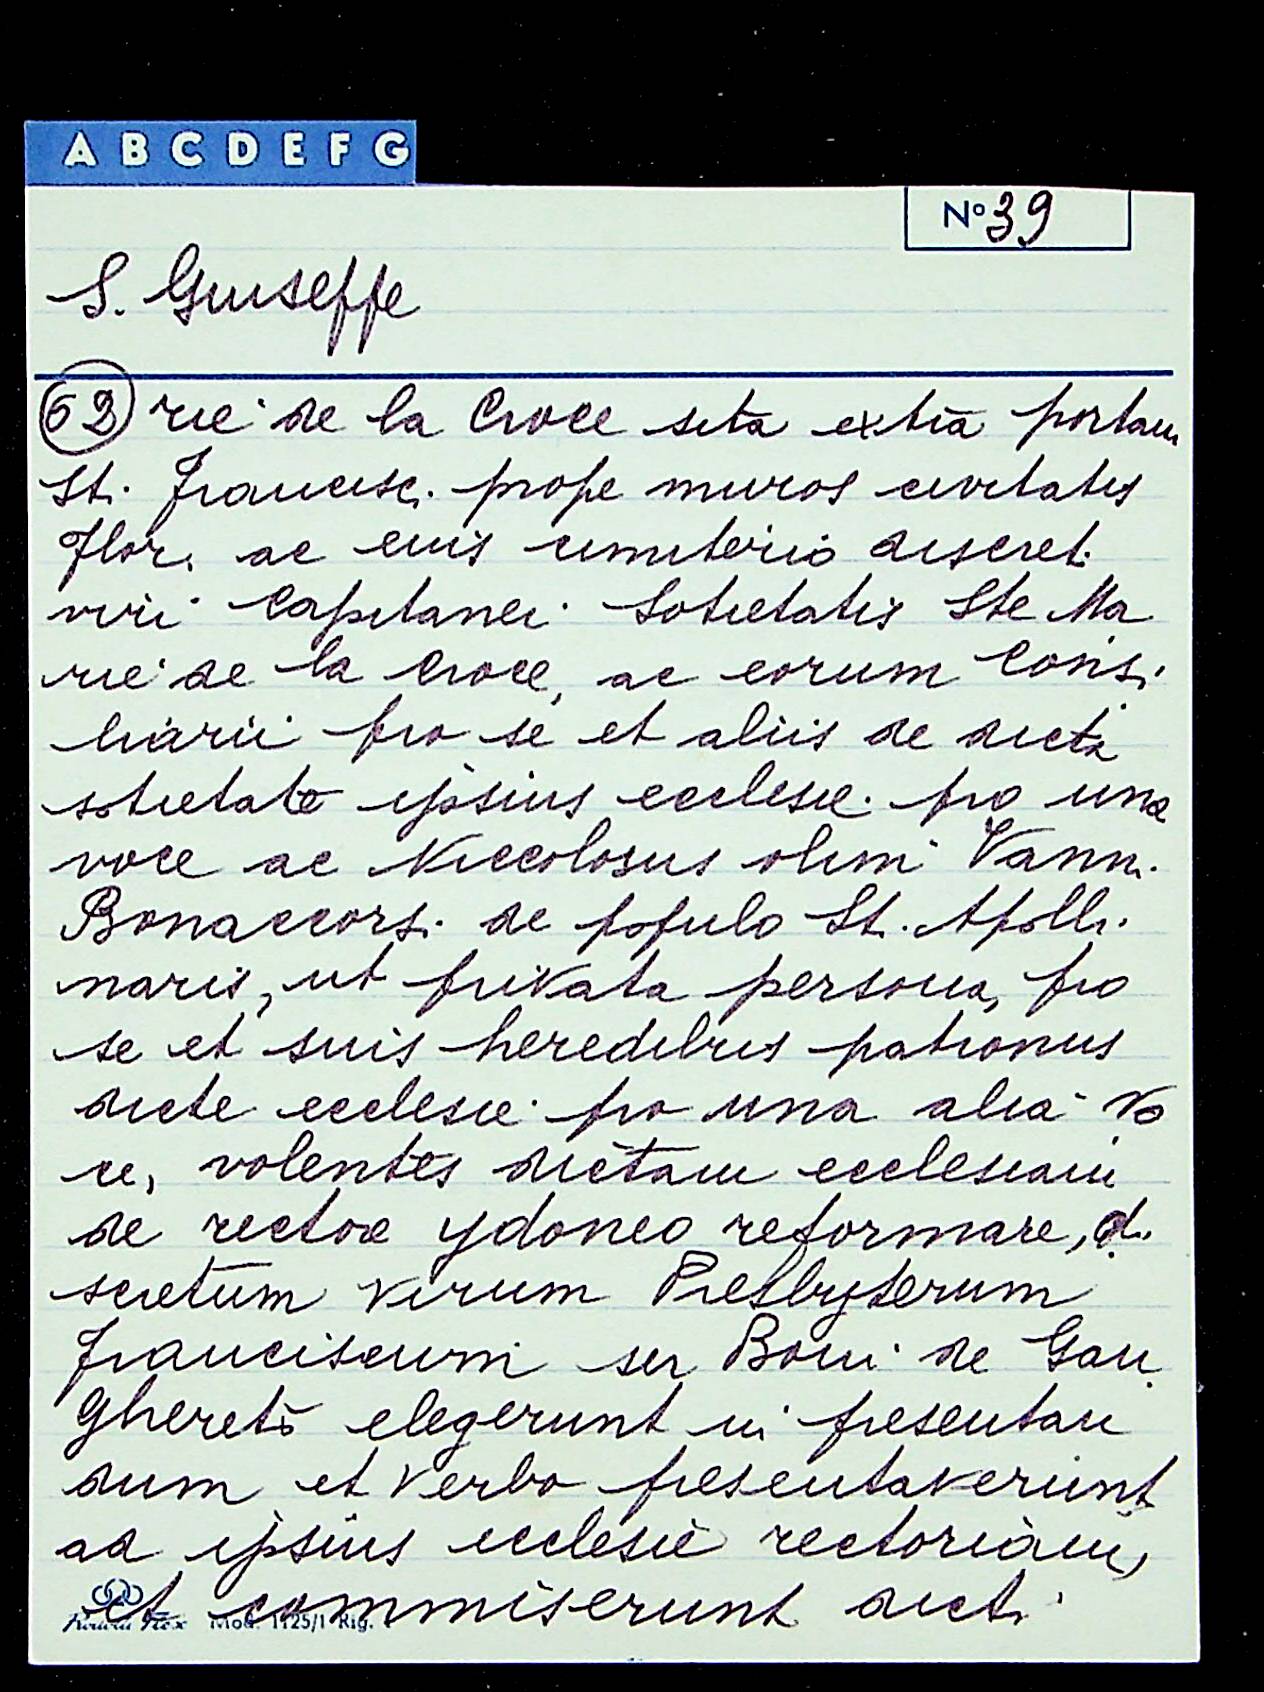 A B C D E F G
Nº 39
S. Giuseppe
62 rie de la Croce sita extra portam
Sti. Francisci prope muros civitatis
Flor. ac eius cimiterio discreti
viri Capitanei Sotietatis Ste Ma
rie de la Croce, ac eorum Consi
liarii pro se et aliis de dicta
sotietate ipsius ecclesie pro una
voce ac Niccolosus olim Vanni
Bonaccorsi de populo Sti. Apolli
naris, ut privata persona, pro
se et suis heredibus patronus
dicte ecclesie pro una alia vo
ce, volentes dictam ecclesiam
de rectore ydoneo reformare, di
scretum virum Presbyterum
Franciscum ser Boni de Gan
ghereto elegerunt in presentan
dum et verbo presentaverunt
ad ipsius ecclesie rectoriam,
et commiserunt dicti
Mod. 1125/1 Rig.